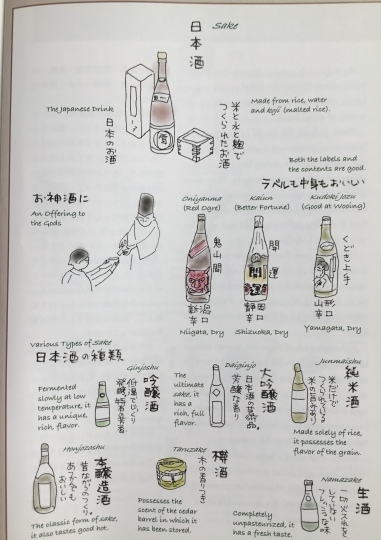 日本酒
Sake
The Japanese Drink
日本のお酒
米と水と麹で
つくられたお酒
Made from rice, water
and kōji (malted rice).
Both the labels and
the contents are good.
ラベルも中身もおいしい
お神酒に
An Offering to
the Gods
Oniyanma
(Red Ogre)
鬼山間
新潟
辛口
Niigata, Dry
Kaiun
(Better Fortune)
開運
静岡
辛口
Shizuoka, Dry
Kudoki Jozu
(Good at Wooing)
くどき上手
山形
辛口
Yamagata, Dry
Various Types of Sake
日本酒の種類
Ginjoshu
吟醸酒
低温でじっくり
Fermented
slowly at low
temperature, it
has a unique,
rich, flavor.
Daiginjo
大吟醸酒
日本酒の芸術品。
芳醇な香り
The
ultimate
sake, it
has a
rich, full
flavor.
Junmaishu
純米酒
米だけで
つくられている
米の旨みあり
Made solely of rice,
it possesses the
flavor of the grain.
Honjozoshu
本醸造酒
昔ながらのつくり。
あつかんでも
おいしい
The classic form of sake,
it also tastes good hot.
Taruzake
樽酒
木の香りつき
Possesses the
scent of the cedar
barrel in which it
has been stored.
Namazake
生酒
一切火入れを
していない
フレッシュな味
Completely
unpasteurized, it
has a fresh taste.